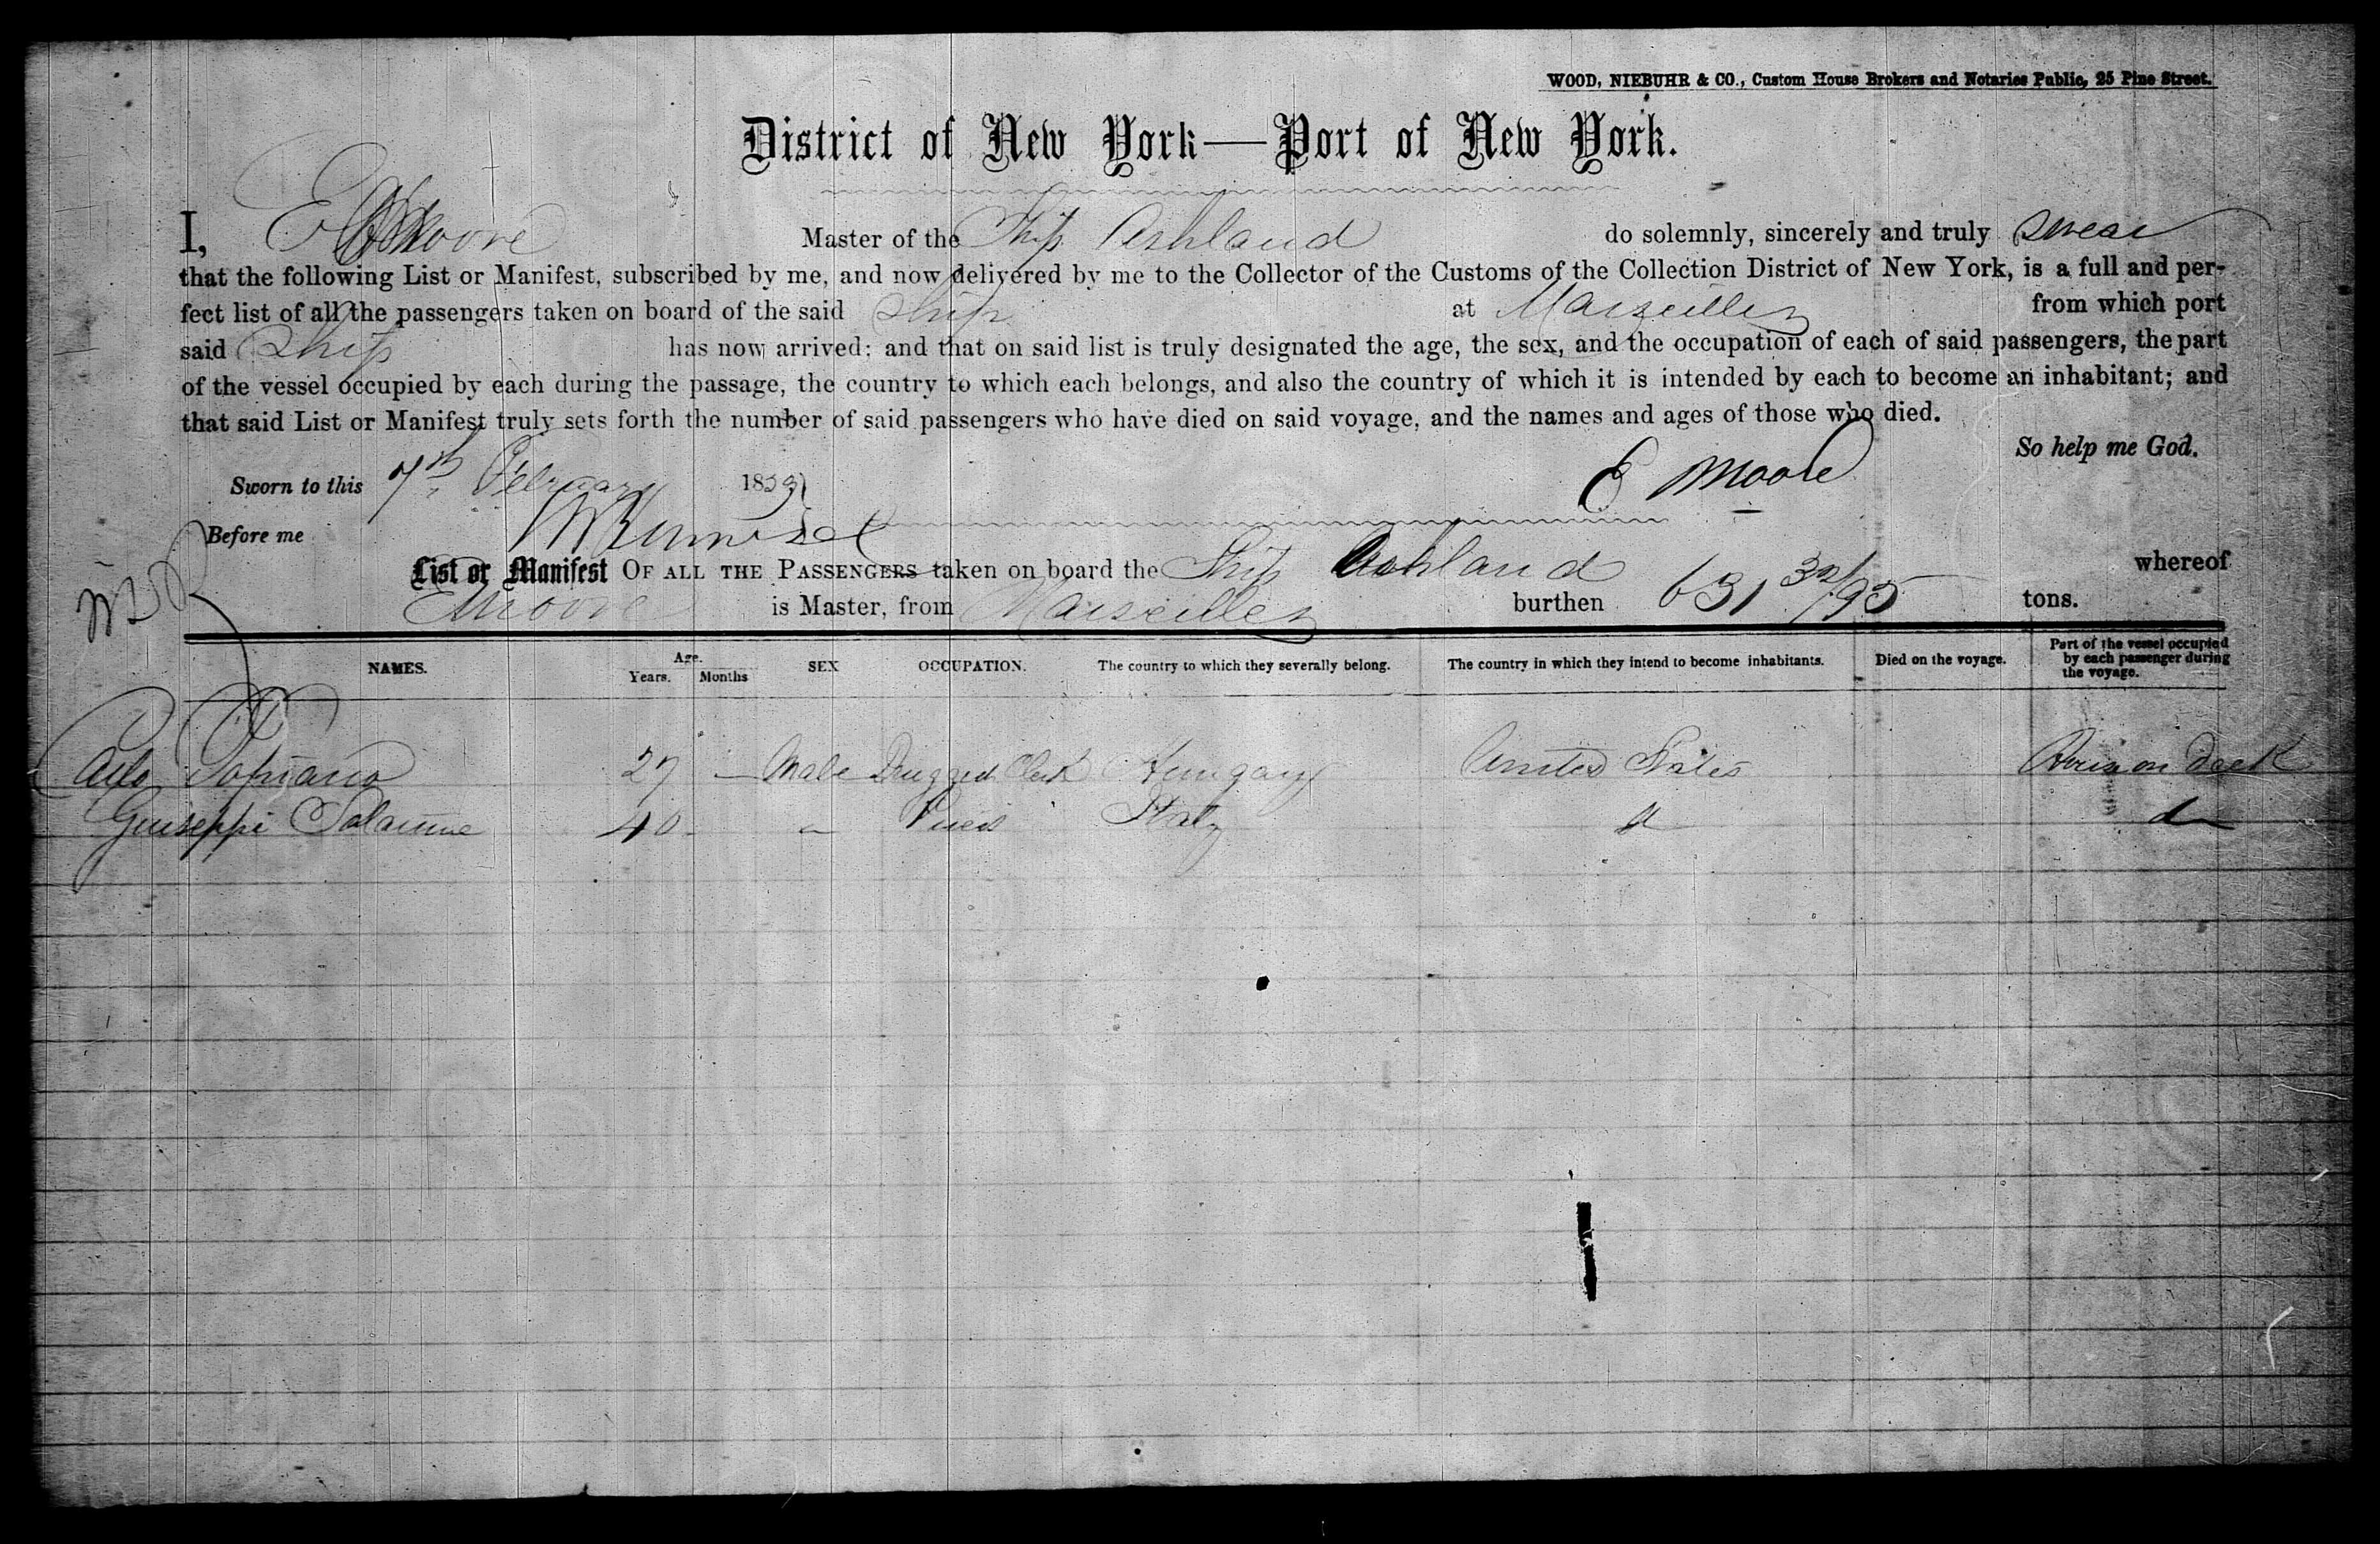 WOOD, NIEBUHR & CO., Custom House Brokers and Notaries Public, 25 Pine Street.
District of New York—Port of New York.
I, E Moore Master of the Ship Ashland do solemnly, sincerely and truly swear
that the following List or Manifest, subscribed by me, and now delivered by me to the Collector of the Customs of the Collection District of New York, is a full and per-
fect list of all the passengers taken on board of the said Ship at Marseilles from which port
said Ship has now arrived; and that on said list is truly designated the age, the sex, and the occupation of each of said passengers, the part
of the vessel occupied by each during the passage, the country to which each belongs, and also the country of which it is intended by each to become an inhabitant; and
that said List or Manifest truly sets forth the number of said passengers who have died on said voyage, and the names and ages of those who died.
So help me God.
Sworn to this 7th February 1859 E Moore
Before me
List or Manifest OF ALL THE PASSENGERS taken on board the Ship Ashland whereof
E Moore is Master, from Marseilles burthen 631 32/95 tons.
NAMES. Age. Years. Months SEX OCCUPATION. The country to which they severally belong. The country in which they intend to become inhabitants. Died on the voyage. Part of the vessel occupied by each passenger during the voyage.
27 — Male Clerk Hungary United States House on Deck
Guiseppi 40 Italy do